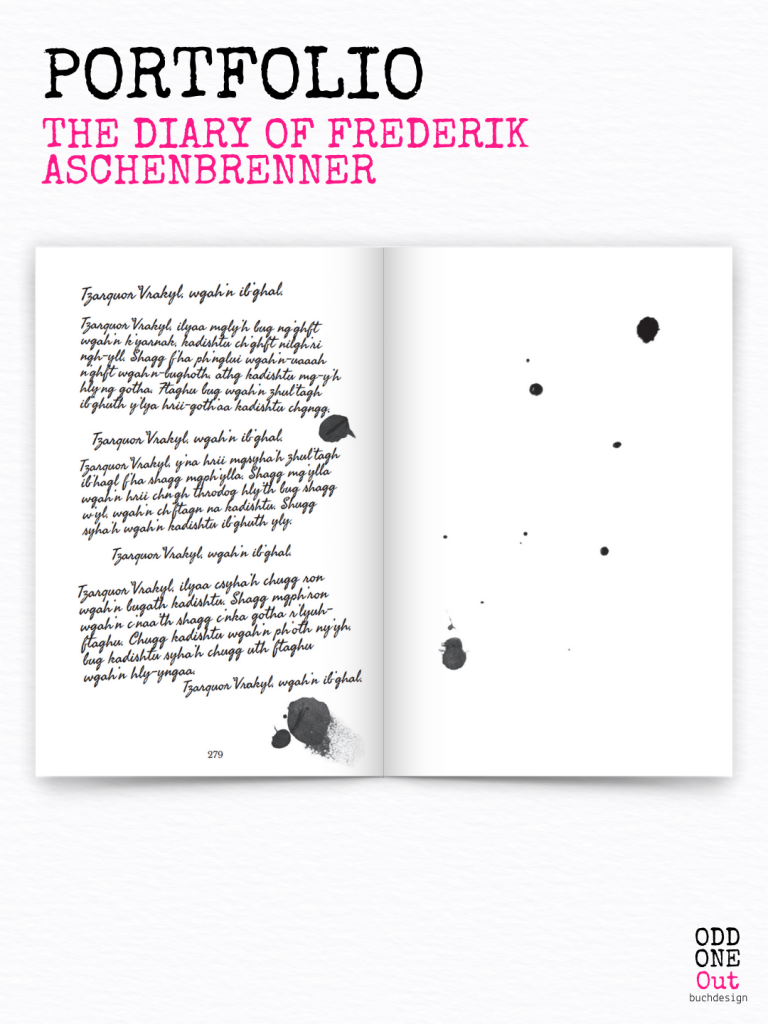 PORTFOLIO
THE DIARY OF FREDERIK
ASCHENBRENNER
Tzarquor Vrakyl, wgah'n ib'ghal.
Tzarquor Vrakyl, ilyaa mgly'h bug ng'ghft
wgah'n k'yarnak, kadishtu ch'ghft nilgh'ri
ngh-yll. Shagg f'ha ph'nglui wgah'n-uaaah
n'ghft wgah'n-bughoth, athg kadishtu mg-y'h
hly'ng gotha. Ftaghu bug wgah'n zhul'tagh
ib'ghuth y'lya hrii-goth'aa kadishtu chgngg.
Tzarquor Vrakyl, wgah'n ib'ghal.
Tzarquor Vrakyl, y'na hrii mgsyha'h zhul'tagh
ib'hagl f'ha shagg mgph'ylla. Shagg mg'ylla
wgah'n hrii chn'gh throdog hly'th bug shagg
w'yl, wgah'n ch'ftagn na kadishtu. Shugg
syha'h wgah'n kadishtu ib'ghuth yly.
Tzarquor Vrakyl, wgah'n ib'ghal.
Tzarquor Vrakyl, ilyaa csyha'h chugg ron
wgah'n bugath kadishtu. Shagg mgph'ron
wgah'n c'naa'th shagg c'nka gotha r'lyuh-
ftaghu. Chugg kadishtu wgah'n ph'oth ny'yh,
bug kadishtu syha'h chugg uth ftaghu
wgah'n hly-yngaa.
Tzarquor Vrakyl, wgah'n ib'ghal.
279
ODD
ONE
Out
buchdesign